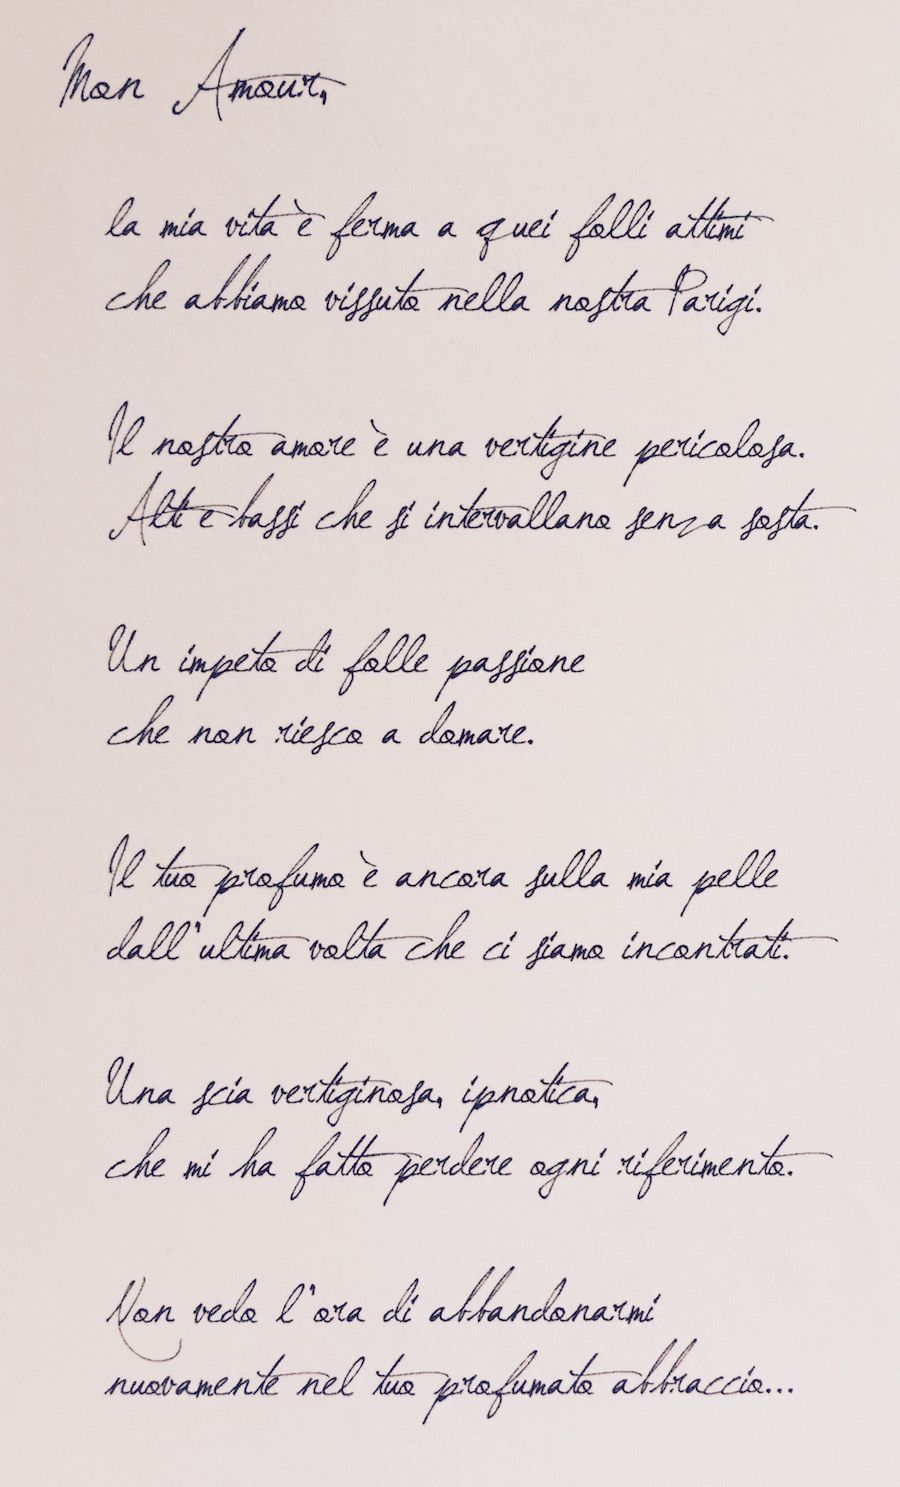 Mon Amour,
la mia vita è ferma a quei folli attimi
che abbiamo vissuto nella nostra Parigi.
Il nostro amore è una vertigine pericolosa.
Alti e bassi che si intervallano senza sosta.
Un impeto di folle passione
che non riesco a domare.
Il tuo profumo è ancora sulla mia pelle
dall'ultima volta che ci siamo incontrati.
Una scia vertiginosa, ipnotica,
che mi ha fatto perdere ogni riferimento.
Non vedo l'ora di abbandonarmi
nuovamente nel tuo profumato abbraccio...